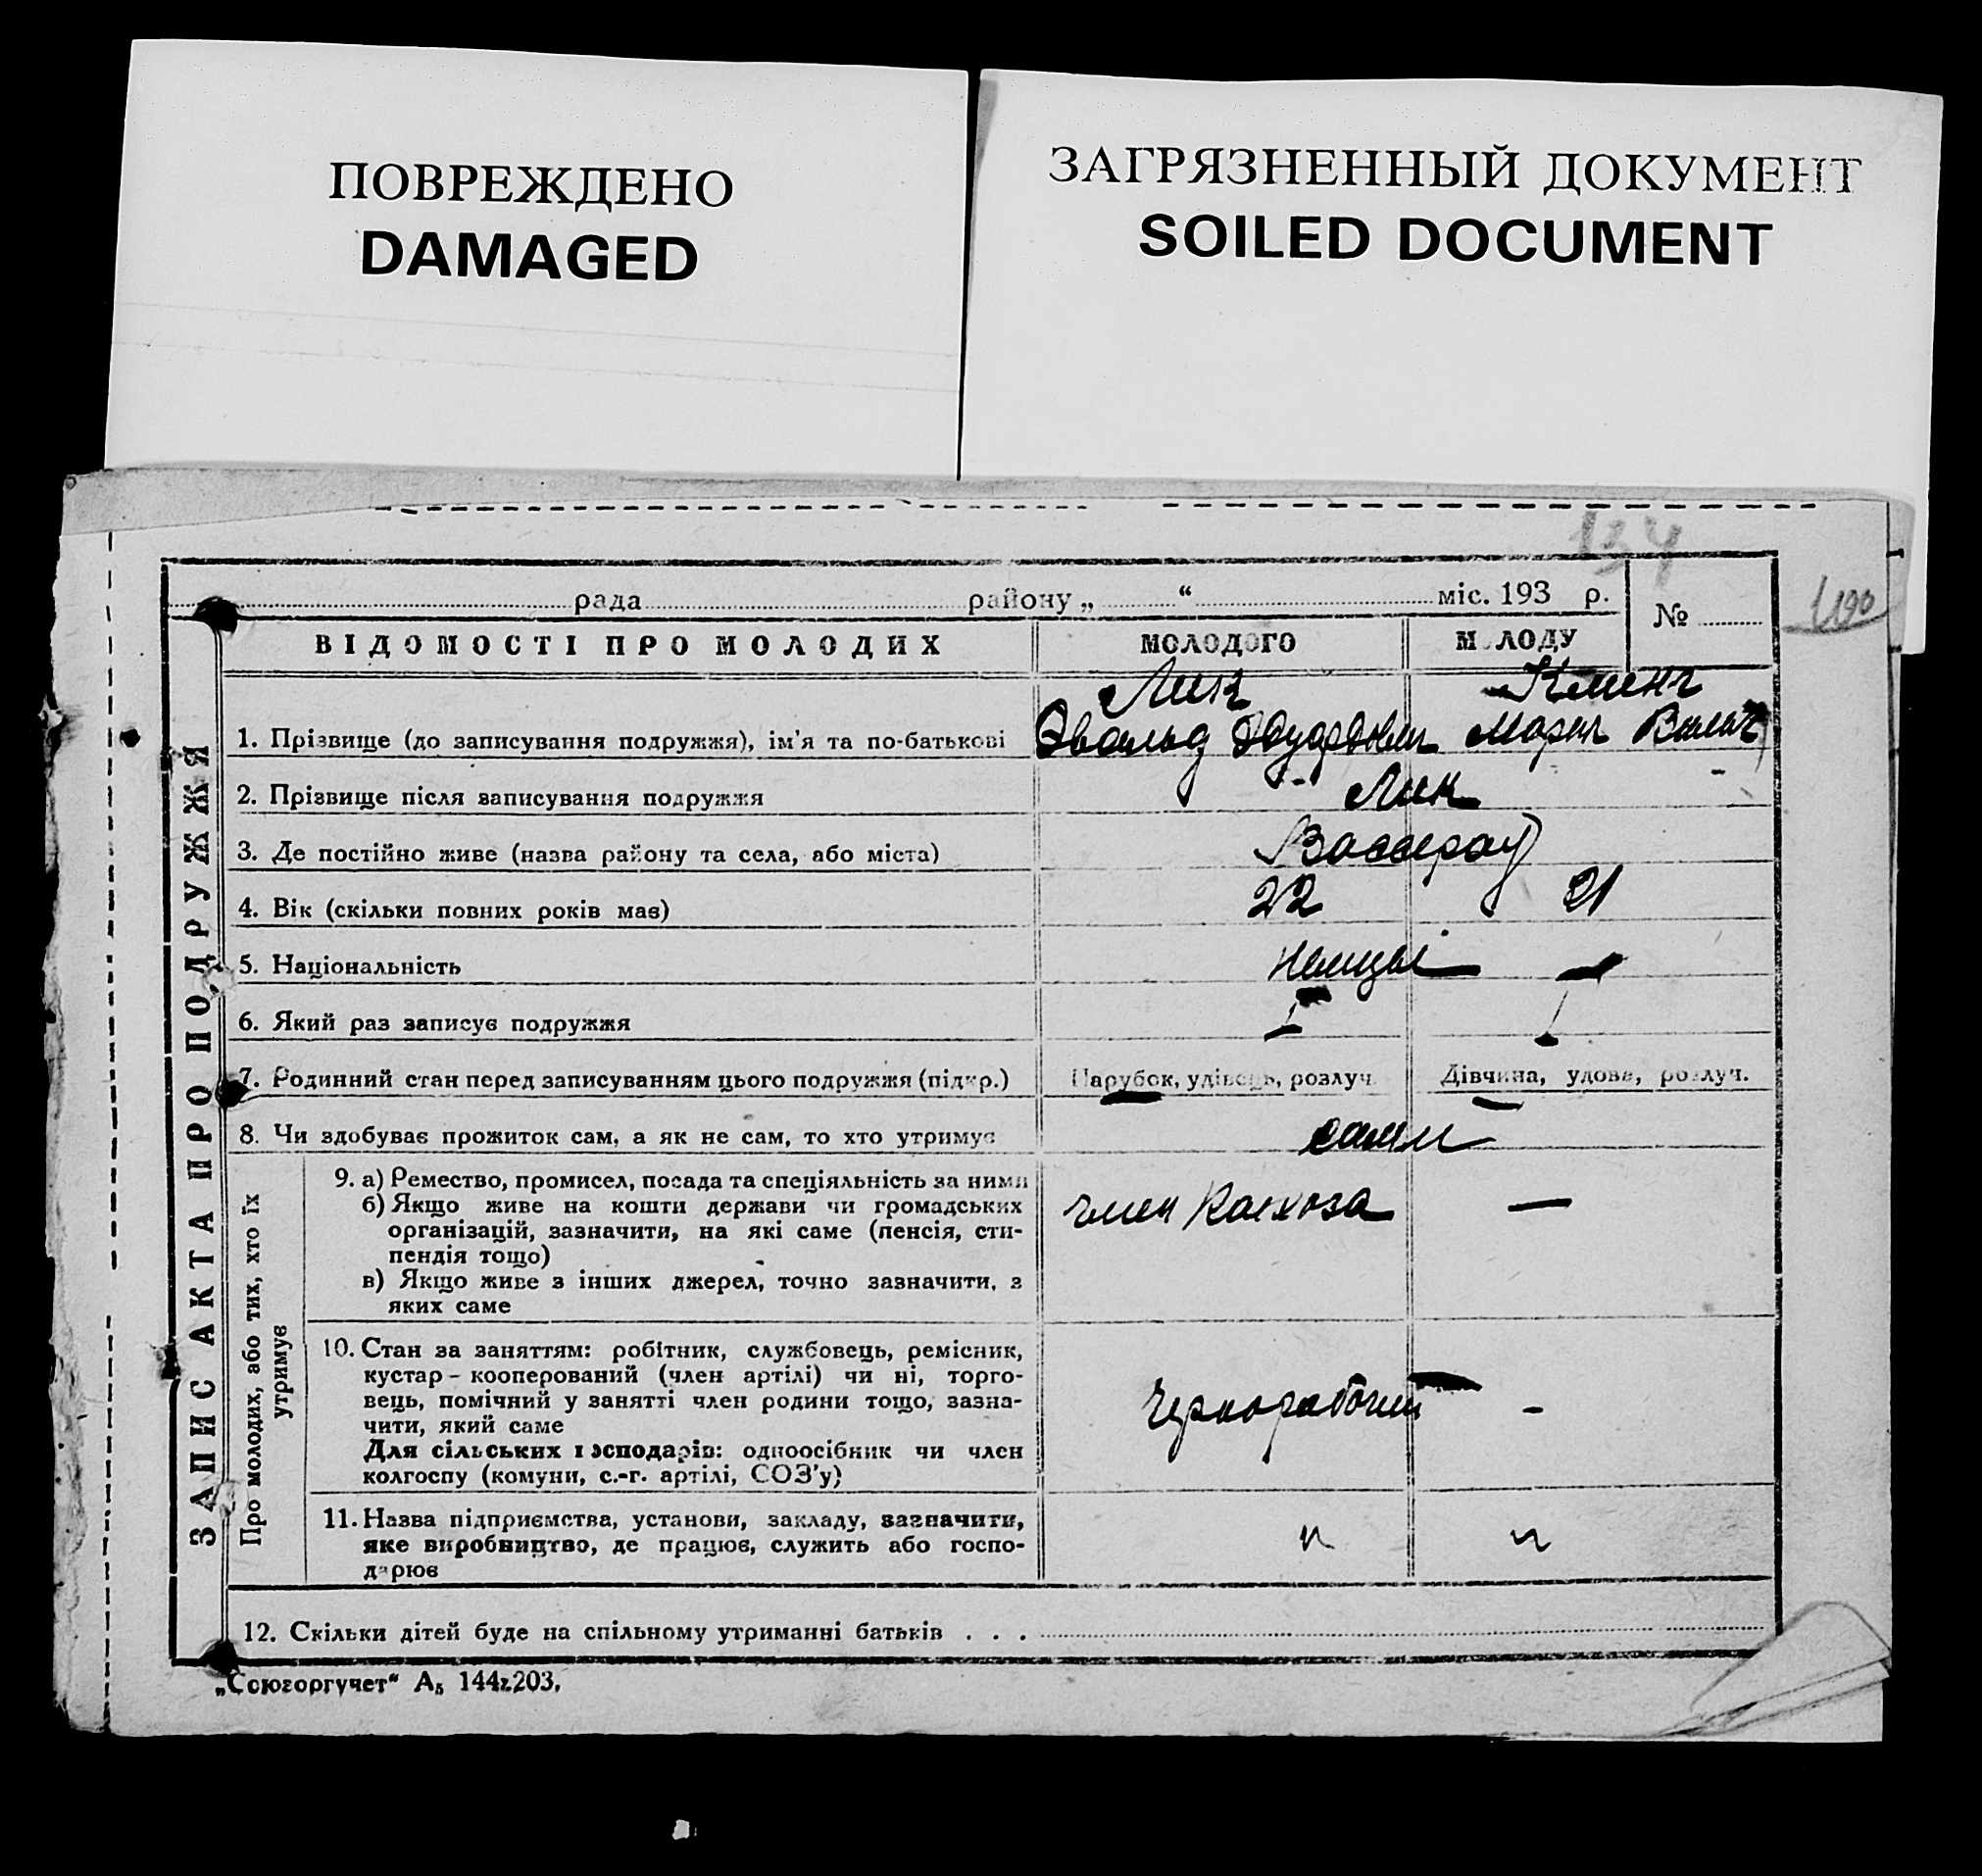 ПОВРЕЖДЕНО
DAMAGED
ЗАГРЯЗНЕННЫЙ ДОКУМЕНТ
SOILED DOCUMENT
134
рада районуу „ “ міс. 193 р.
№
190
ЗАПИС АКТА ПРО ПОДРУЖЖЯ
ВІДОМОСТІ ПРО МОЛОДИХ
МОЛОДОГО
МОЛОДУ
1. Прізвище (до записування подружжя), ім'я та по-батькові
Лик
Эвальд Эдуардович
Мария
2. Прізвище після записування подружжя
Лик
3. Де постійно живе (назва району та села, або міста)
Вассерау
4. Вік (скільки повних років має)
22
21
5. Національність
Немцы
—
6. Який раз записує подружжя
I
I
7. Родинний стан перед записуванням цього подружжя (підкр.)
Парубок, удівець, розлуч.
Дівчина, удова, розлуч.
8. Чи здобуває прожиток сам, а як не сам, то хто утримує
сами
Про молодих, або тих, хто їх
утримує
9. а) Ремество, промисел, посада та спеціяльність за ними
б) Якщо живе на кошти держави чи громадських
організацій, зазначити, на які саме (пенсія, сти-
пендія тощо)
в) Якщо живе з інших джерел, точно зазначити, з
яких саме
член Колхоза
—
10. Стан за заняттям: робітник, службовець, ремісник,
кустар – кооперований (член артілі) чи ні, торго-
вець, помічний у занятті член родини тощо, зазна-
чити, який саме
Для сільських господарів: одноосібник чи член
колгоспу (комуни, с.-г. артілі, СОЗ'у)
Чернорабочий
-
11. Назва підприємства, установи, закладу, зазначити,
яке виробництво, де працює, служить або госпо-
дарює
"
"
12. Скільки дітей буде на спільному утриманні батьків . . .
„Союзоргучет“ А5 144203.